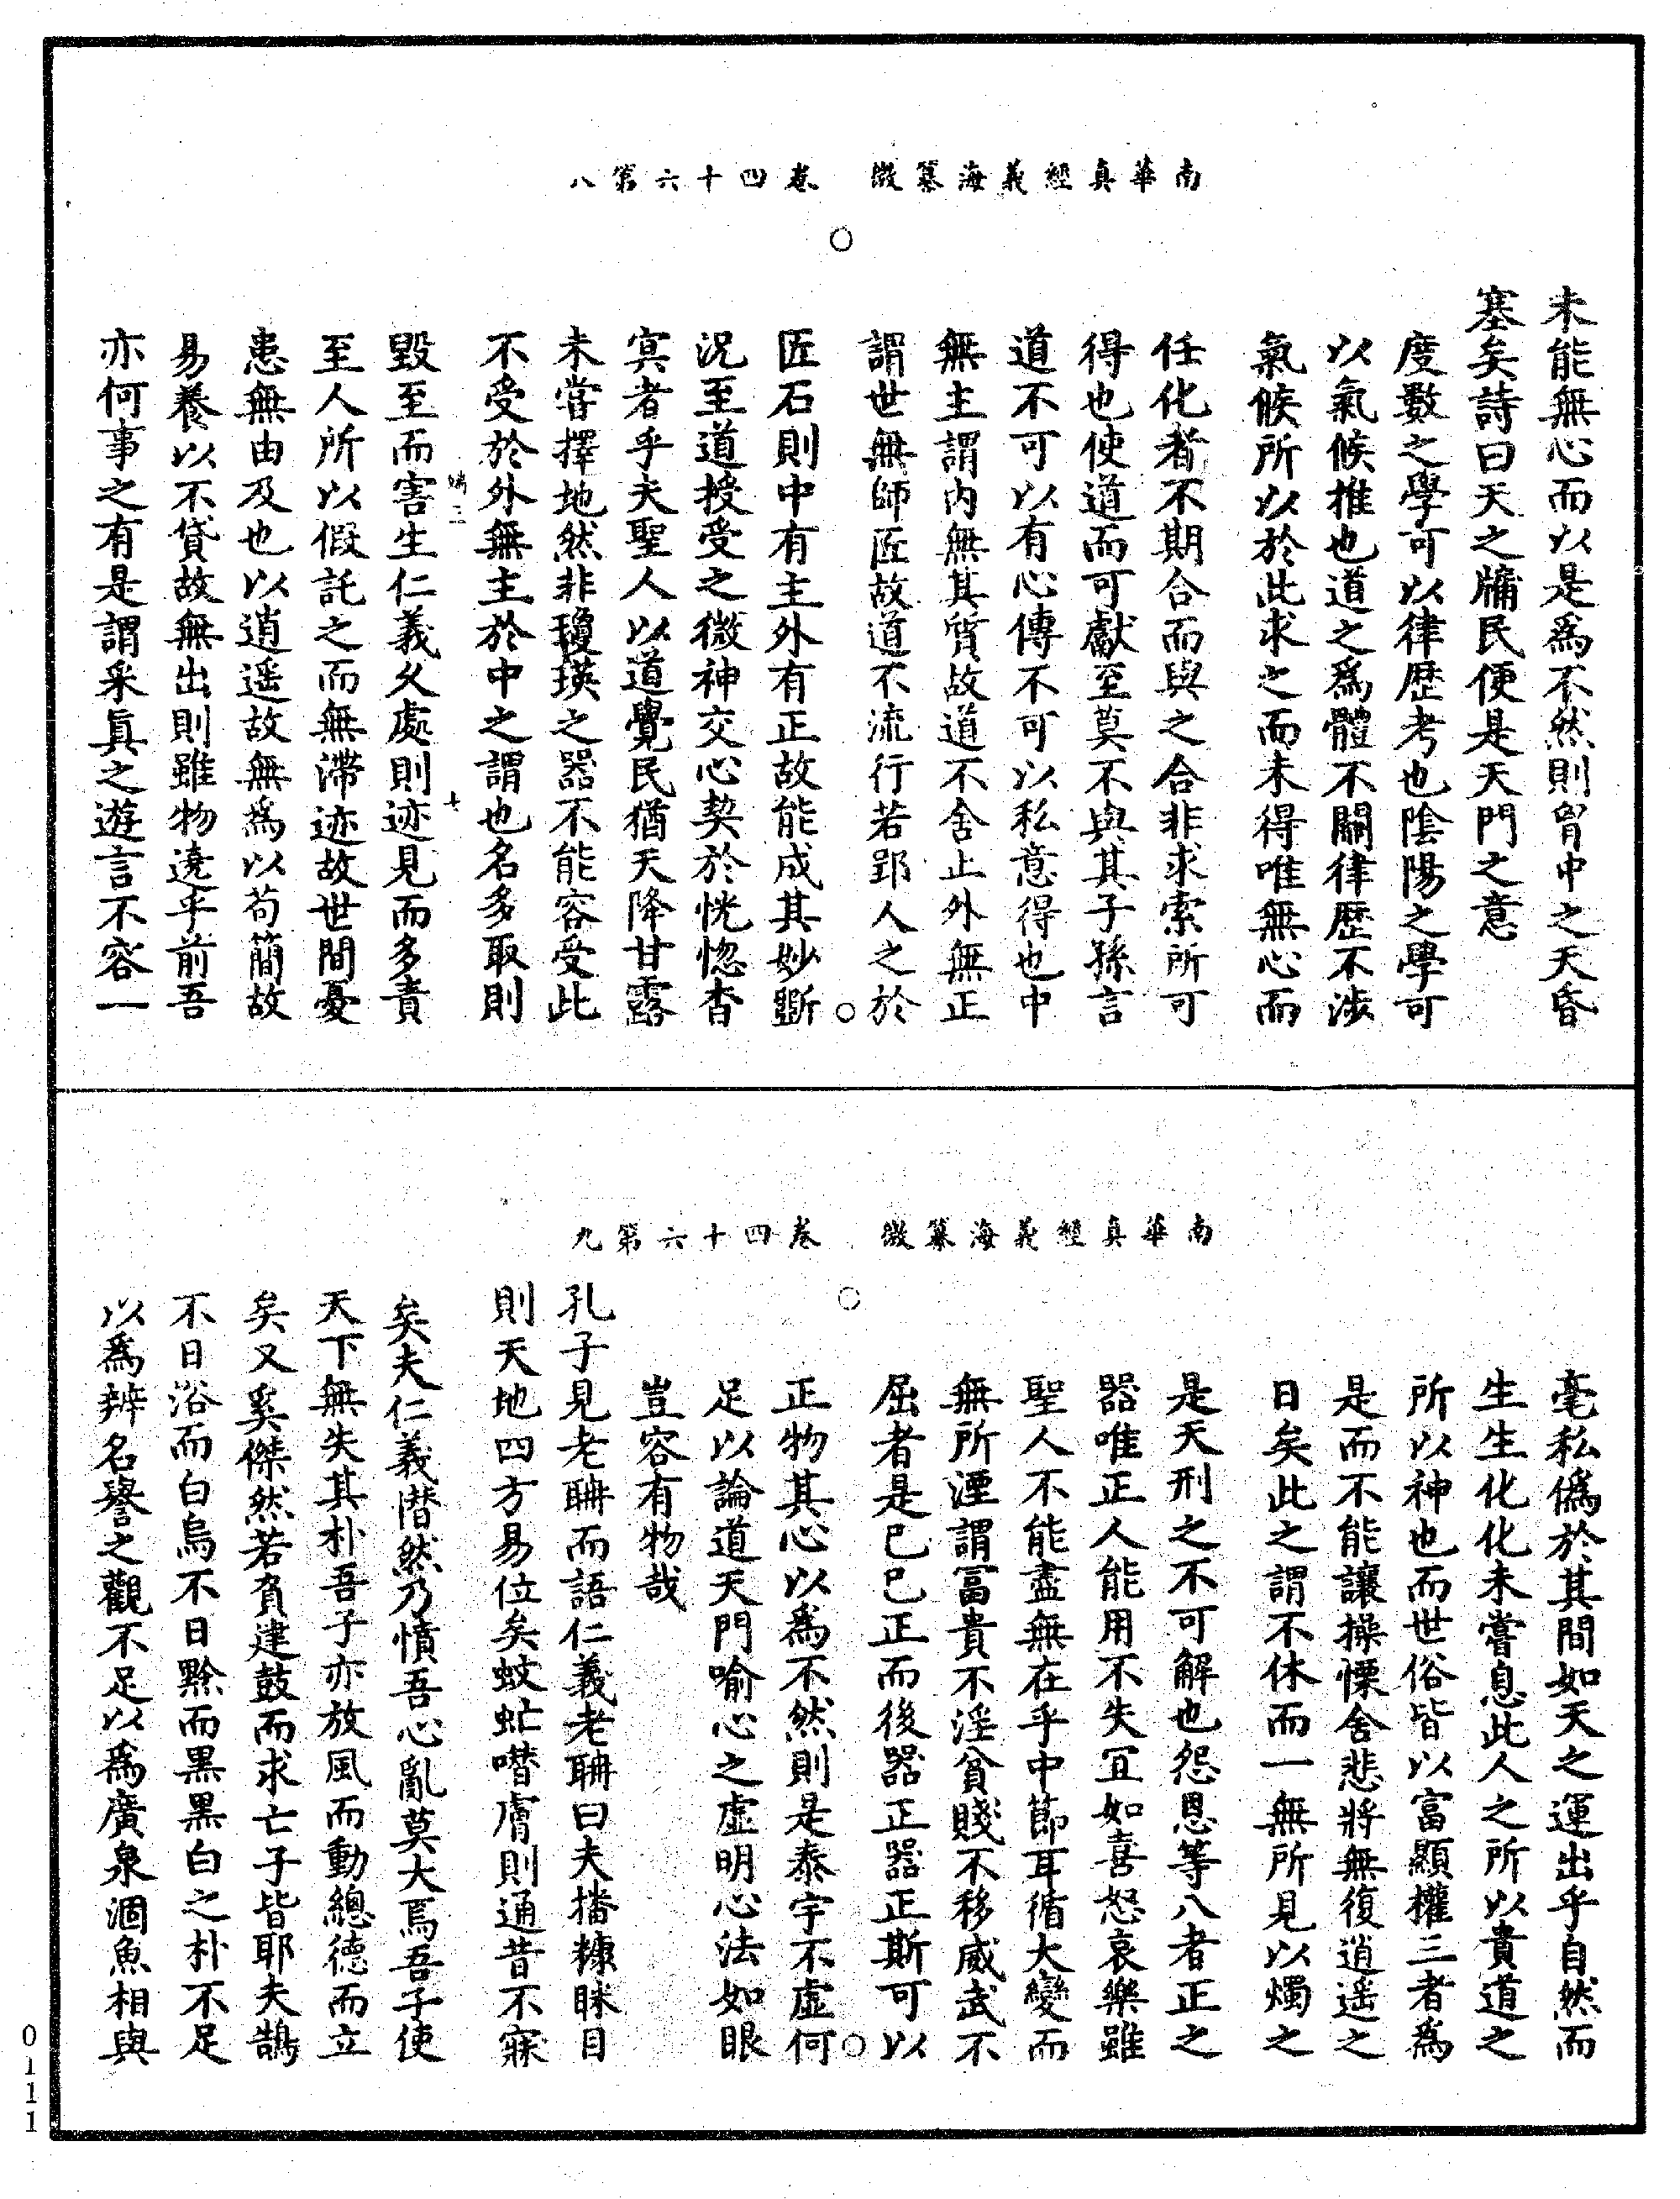 南華真經義海纂微 卷四十六第八
未能無心而以是爲不然則胷中之天昏
塞矣詩曰天之牖民便是天門之意
度數之學可以律歷考也陰陽之學可
以氣候推也道之爲體不關律歷不涉
氣候所以於此求之而未得唯無心而
任化者不期合而與之合非求索所可
得也使道而可獻至莫不與其子孫言
道不可以有心傳不可以私意得也中
無主謂内無其質故道不舍止外無正
謂世無師匠故道不流行若郢人之於
匠石則中有主外有正故能成其妙斲
況至道授受之微神交心契於恍惚杳
冥者乎夫聖人以道覺民猶天降甘露
未嘗擇地然非瓊瑛之器不能容受此
不受於外無主於中之謂也名多取則
三 七
毀至而害生仁義久處則迹見而多責
至人所以假託之而無滯迹故世間憂
患無由及也以逍遥故無爲以苟簡故
易養以不貸故無出則雖物遶乎前吾
亦何事之有是謂采真之遊言不容一
南華真經義海纂微 卷四十六第九
毫私僞於其間如天之運出乎自然而
生生化化未嘗息此人之所以貴道之
所以神也而世俗皆以富顯權三者爲
是而不能讓操慄舍悲將無復逍遥之
日矣此之謂不休而一無所見以燭之
是天刑之不可解也怨恩等八者正之
器唯正人能用不失冝如喜怒哀樂雖
聖人不能盡無在乎中節耳循大變而
無所湮謂富貴不淫貧賤不移威武不
屈者是已已正而後器正器正斯可以
正物其心以爲不然則是泰宇不虛何
足以論道天門喻心之虛明心法如眼
豈容有物哉
孔子見老聃而語仁義老聃曰夫播糠眯目
則天地四方易位矣蚊虻噆膚則通昔不寐
矣夫仁義憯然乃憤吾心亂莫大焉吾子使
天下無失其朴吾子亦放風而動總德而立
矣又奚傑然若負建鼓而求亡子皆耶夫鵠
不日浴而白烏不日黔而黒黒白之朴不足
以爲辨名譽之觀不足以爲廣泉涸魚相與
0111